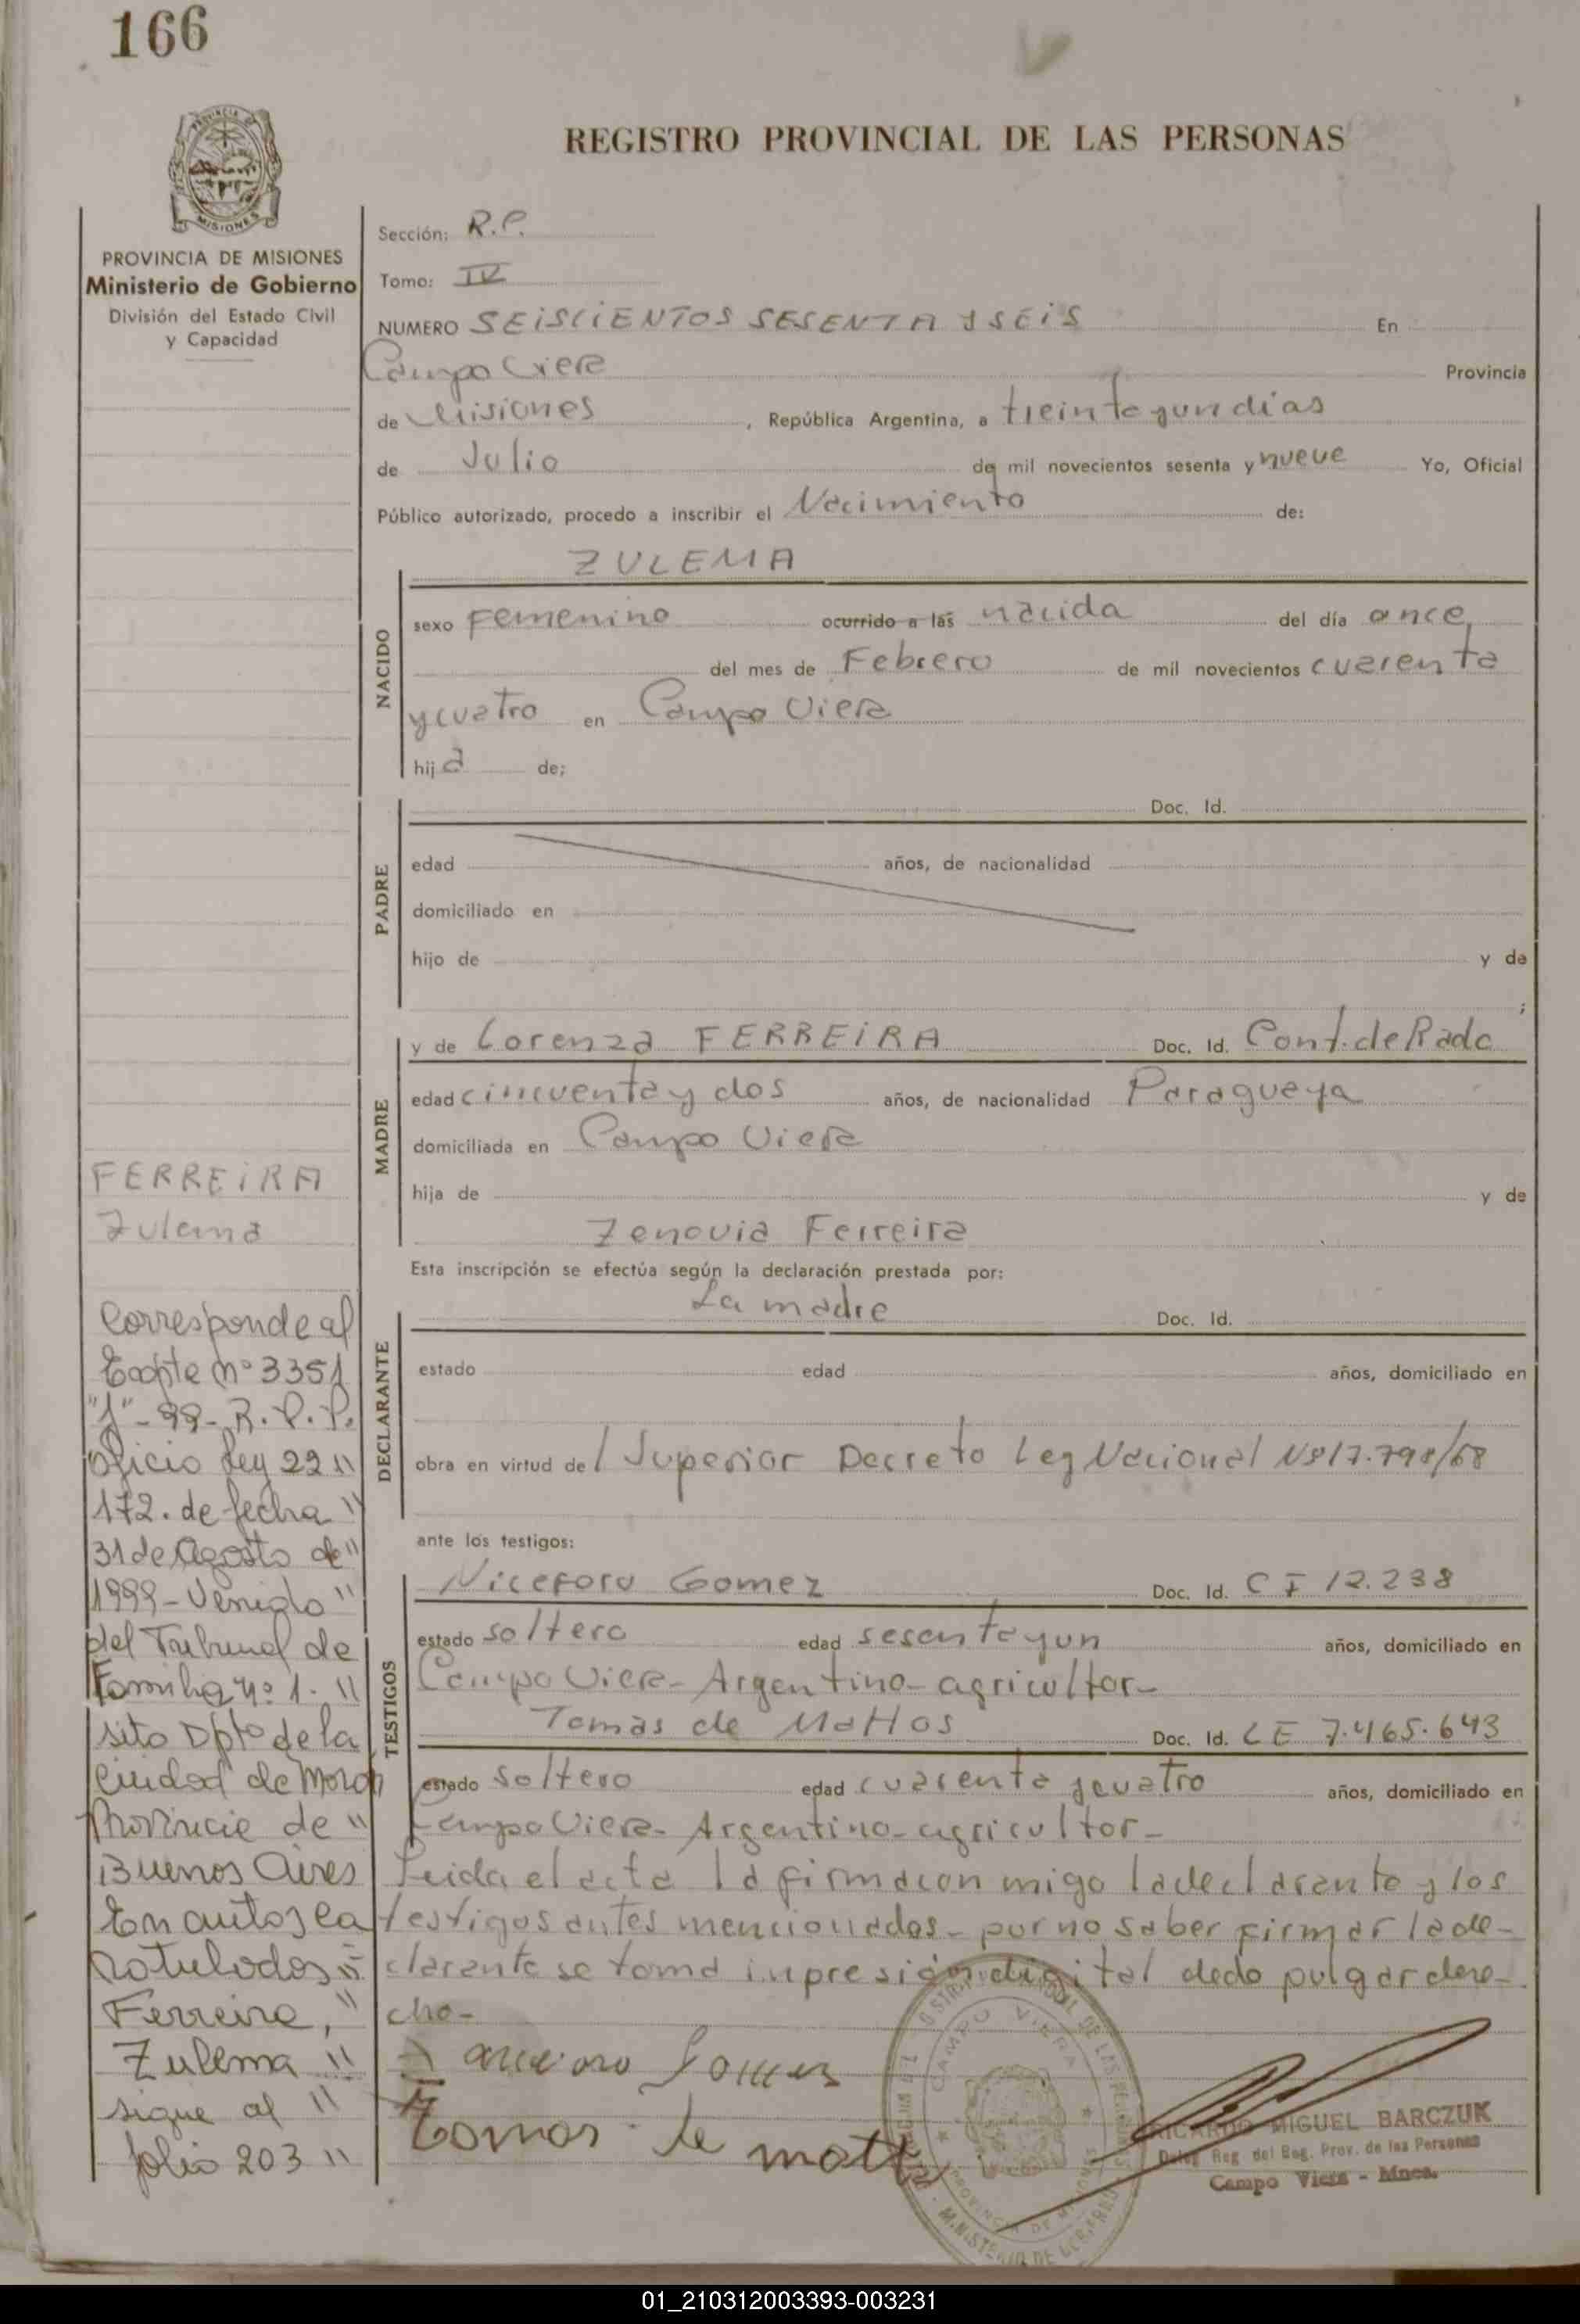 166
REGISTRO PROVINCIAL DE LAS PERSONAS
MISIONES
PROVINCIA DE MISIONES
Ministerio de Gobierno
División del Estado Civil
y Capacidad
Sección: R.P.
Tomo: IV
NUMERO SEISCIENTOS SESENTA Y SEIS En
Campo Viera Provincia
de Misiones, República Argentina, a treinta y un días
de Julio de mil novecientos sesenta y nueve Yo, Oficial
Público autorizado, procedo a inscribir el Nacimiento de:
ZULEMA
NACIDO
sexo Femenino ocurrido a las nacida del día once
del mes de Febrero de mil novecientos cuarenta
y cuatro en Campo Viera
hija de;
PADRE
Doc. Id.
edad años, de nacionalidad
domiciliado en
hijo de y de
;
MADRE
y de Lorenza FERREIRA Doc. Id. Cont. de Rado
edad cincuenta y dos años, de nacionalidad Paraguaya
domiciliada en Campo Viera
hija de y de
Zenovia Ferreira
Esta inscripción se efectúa según la declaración prestada por:
DECLARANTE
La madre Doc. Id.
estado edad años, domiciliado en
obra en virtud del Superior Decreto Ley Nacional Nº 17.798/68
ante los testigos:
TESTIGOS
Niceforo Gomez Doc. Id. C I 12.238
estado soltero edad sesenta y un años, domiciliado en
Campo Viera - Argentino - agricultor -
Tomás de Mattos Doc. Id. LE 7.465.643
estado soltero edad cuarenta y cuatro años, domiciliado en
Campo Viera - Argentino - agricultor -
Leida el acta la firma con migo la declarante y los
testigos antes mencionados - por no saber firmar la de-
clarante se toma inpresión digital dedo pulgar dere-
cho -
Gomez
Tomas de matto
FERREIRA
Zulema
Corresponde al
Expte nº 3351
"J" - 99 - R. P. P.
Oficio Ley 22 "
172. de fecha "
31 de Agosto de "
1999 - Venido "
del Tribunal de
Familia nº 1. "
sito Dpto de la
Ciudad de Morón
Provincia de "
Buenos Aires
En autos ca
ratulados "
Ferreira, "
Zulema "
sigue al "
folio 203 "
CAMPO VIERA
PROVINCIA DE MISIONES
MINISTERIO DE GOBIERNO
RICARDO MIGUEL BARCZUK
Deleg Reg del Reg. Prov. de las Personas
Campo Viera - Mnes.
01_210312003393-003231